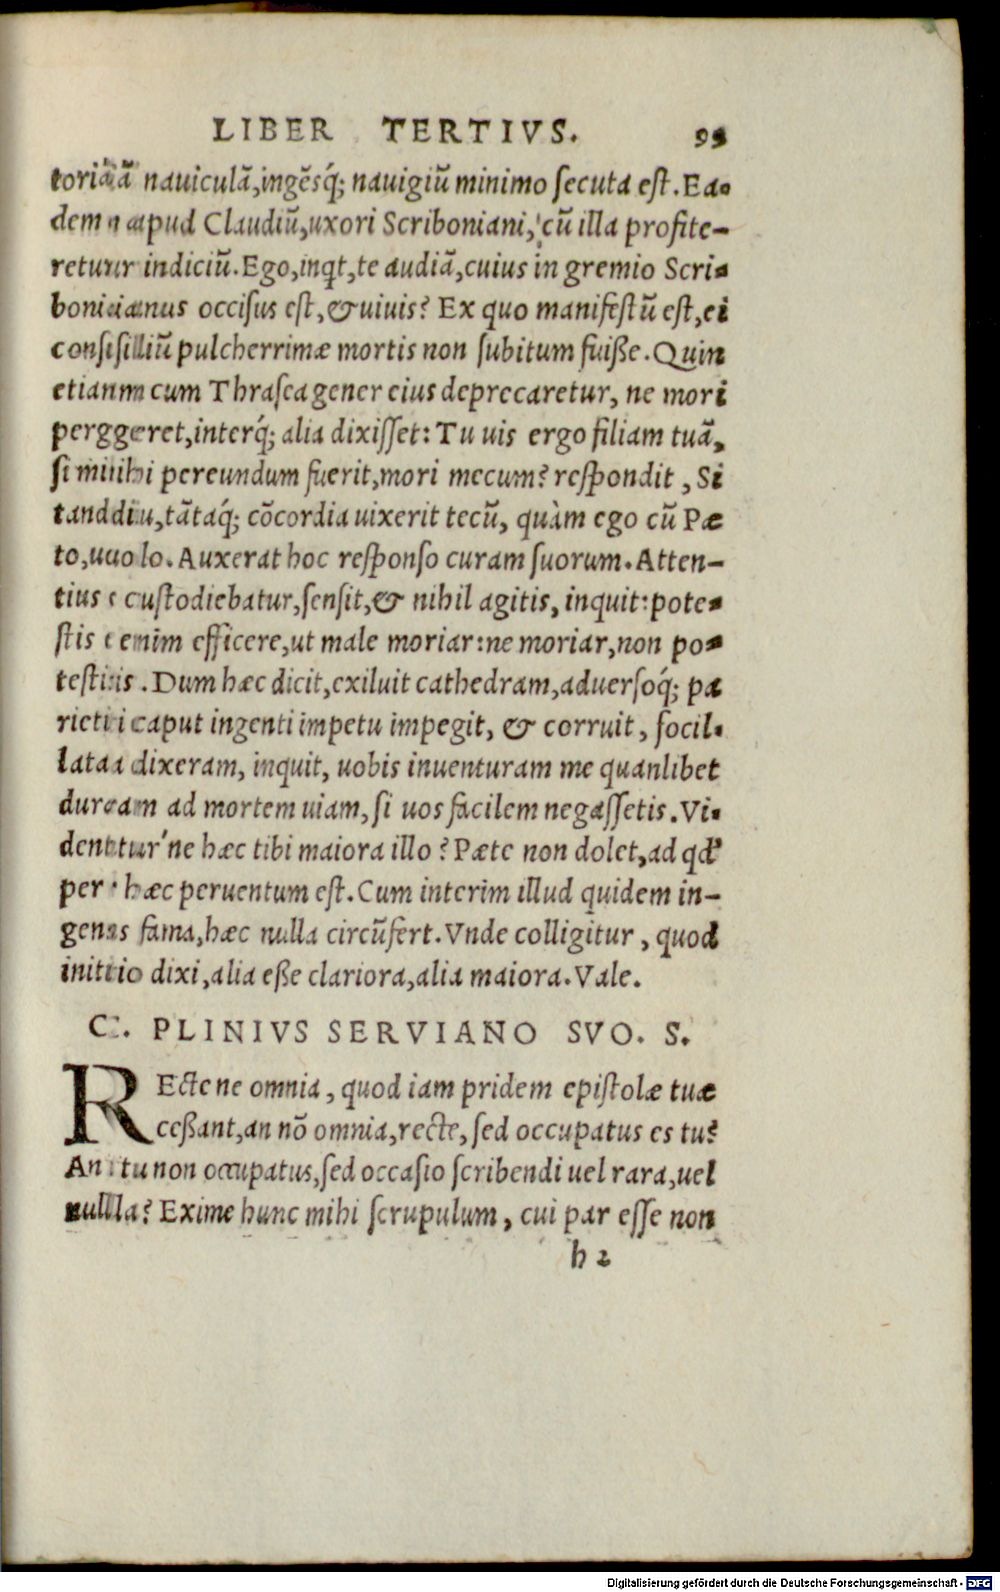 LIBER TERTIVS. 95
toriā nauiculā, ingēsq́; nauigiū minimo ſecuta eſt. Ea-
dem apud Claudiū, uxori Scriboniani, cū illa profite-
retur indiciū. Ego, inqt, te audiā, cuius in gremio Scri-
bonianus occiſus eſt, & uiuis? Ex quo manifeſtū eſt, ei
conſiliū pulcherrimæ mortis non ſubitum fuiße. Quin
etiam cum Thraſea gener eius deprecaretur, ne mori
pergeret, interq́; alia dixiſſet: Tu uis ergo filiam tuā,
ſi mihi pereundum fuerit, mori mecum? reſpondit, Si
tandiu, tātaq́; cōcordia uixerit tecū, quàm ego cū Pæ
to, uolo. Auxerat hoc reſponſo curam ſuorum. Atten-
tius cuſtodiebatur, ſenſit, & nihil agitis, inquit: pote-
ſtis enim efficere, ut male moriar: ne moriar, non po-
teſtis. Dum hæc dicit, exiluit cathedram, aduerſoq́; pa
rieti caput ingenti impetu impegit, & corruit, focil-
lata dixeram, inquit, uobis inuenturam me quanlibet
duram ad mortem uiam, ſi uos facilem negaſſetis. Vi-
dentur'ne hæc tibi maiora illo? Pæte non dolet, ad qd'
per hæc peruentum eſt. Cum interim illud quidem in-
gens fama, hæc nulla circūfert. Vnde colligitur, quod
initio dixi, alia eße clariora, alia maiora. Vale.
C. PLINIVS SERVIANO SVO. S.
REcte ne omnia, quod iam pridem epiſtolæ tuæ
ceßant, an nō omnia, recte, ſed occupatus es tu?
An tu non occupatus, ſed occaſio ſcribendi uel rara, uel
nulla? Exime hunc mihi ſcrupulum, cui par eſſe non
h 2
Digitalisierung gefördert durch die Deutsche Forschungsgemeinschaft - DFG